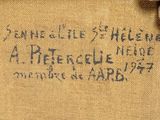 SENNE à L'ÎLE Ste HÉLÈNE
NEIGE
A. PIETERCELIE 1947
membre de AARB.